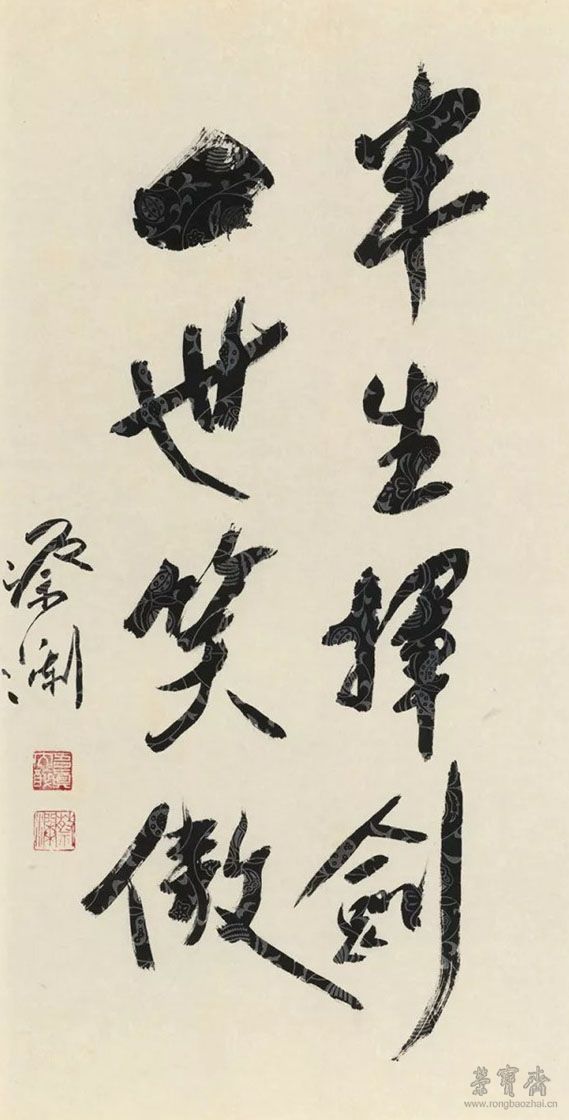 半生揮劍
一世笑傲
蔡瀾
蔡瀾
榮寶齋
www.rongbaozhai.cn